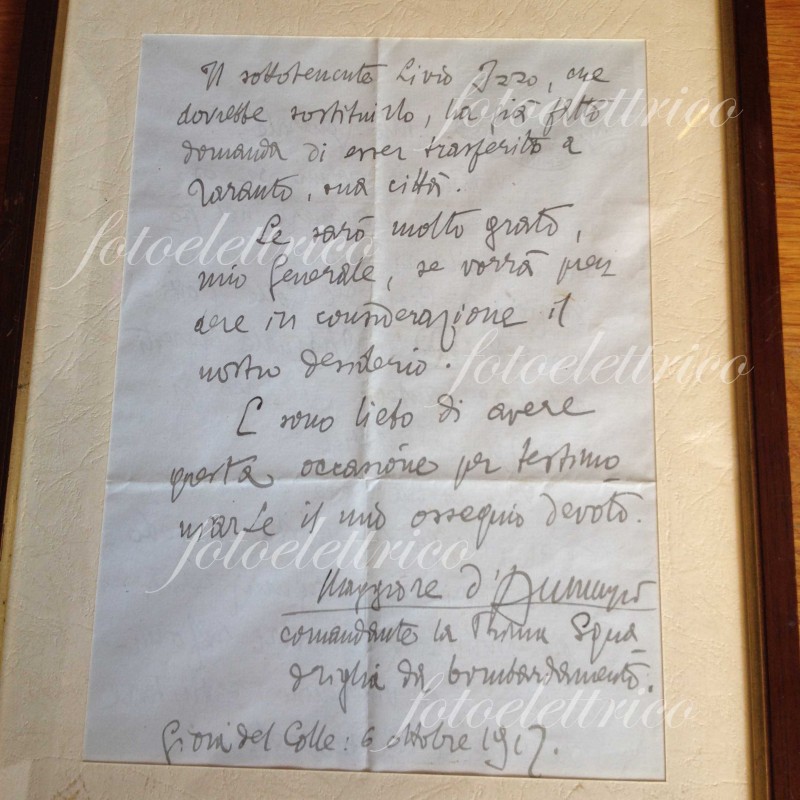 Il sottotenente Livio Izzo, che
dovrebbe sostituirlo, ha già fatto
domanda di esser trasferito a
Taranto, sua città.
Le sarò molto grato,
mio Generale, se vorrà pren
dere in considerazione il
nostro desiderio.
E sono lieto di avere
questa occasione per testimo
niarLe il mio ossequio devoto.
Maggiore d'Annunzio
comandante la Prima Squa
driglia da bombardamento.
Gioia del Colle: 6 ottobre 1917.
fotoelettrico
fotoelettrico
fotoelettrico
fotoelettrico
fotoelettrico